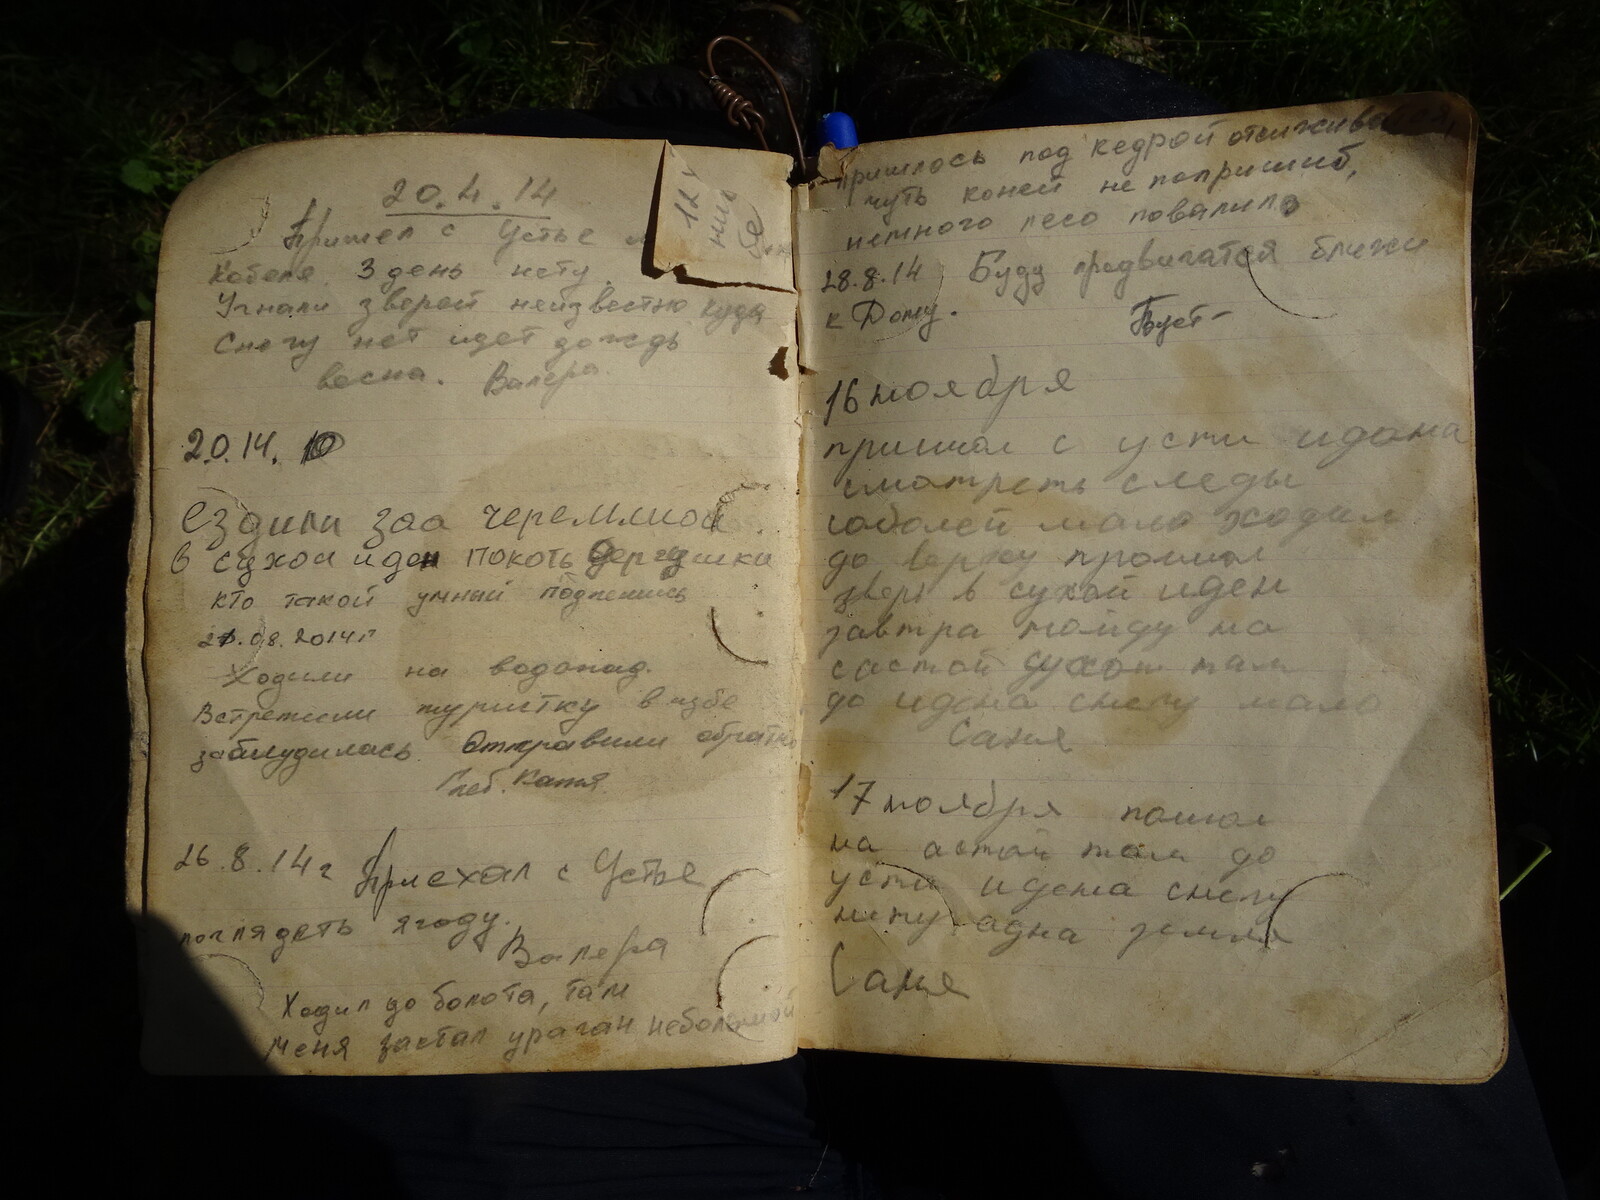 20.4.14
Пришел с Устье
кобеля 3 день нету.
Угнали зверей неизвестно куда
Снегу нет идет дождь
весна. Валера
20.14. 10
ездили заа черемшой
в сухой иден покоть
кто такой умный подпешись
.08.2014г
Ходили на водопад.
Встретили туристку в избе
заблудилась. Отправили обратно
Глеб. Катя.
26.8.14г Приехал с Устье
поглядеть ягоду.
Валера
Ходил до болота, там
меня застал ураган небольшой
пришлось под кедрой отсиживаться,
чуть коней не попришиб,
немного лесо повалило
28.8.14 Буду продвигатся ближи
к Дому.
16 ноября
пришол с усти идена
смотреть следы
соболей мало ходил
до верху прошол
зверь в сухой иден
завтра пойду на
састой сухой там
до идена снегу мало
Саня
17 ноября пошол
на астой там до
усти идена снегу
нету адна земля
Саня